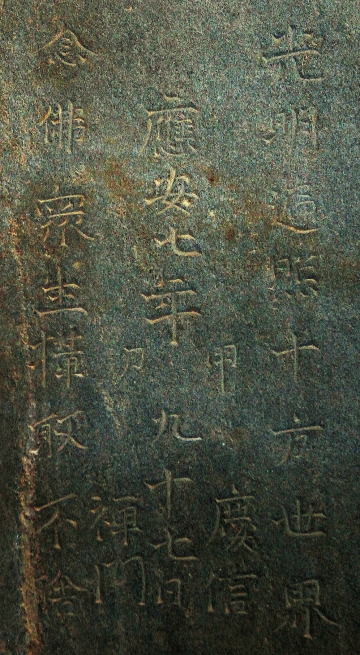 光明遍照十方世界
甲 慶信
應安七年 九十七日
禪門
念佛衆生摂取不捨